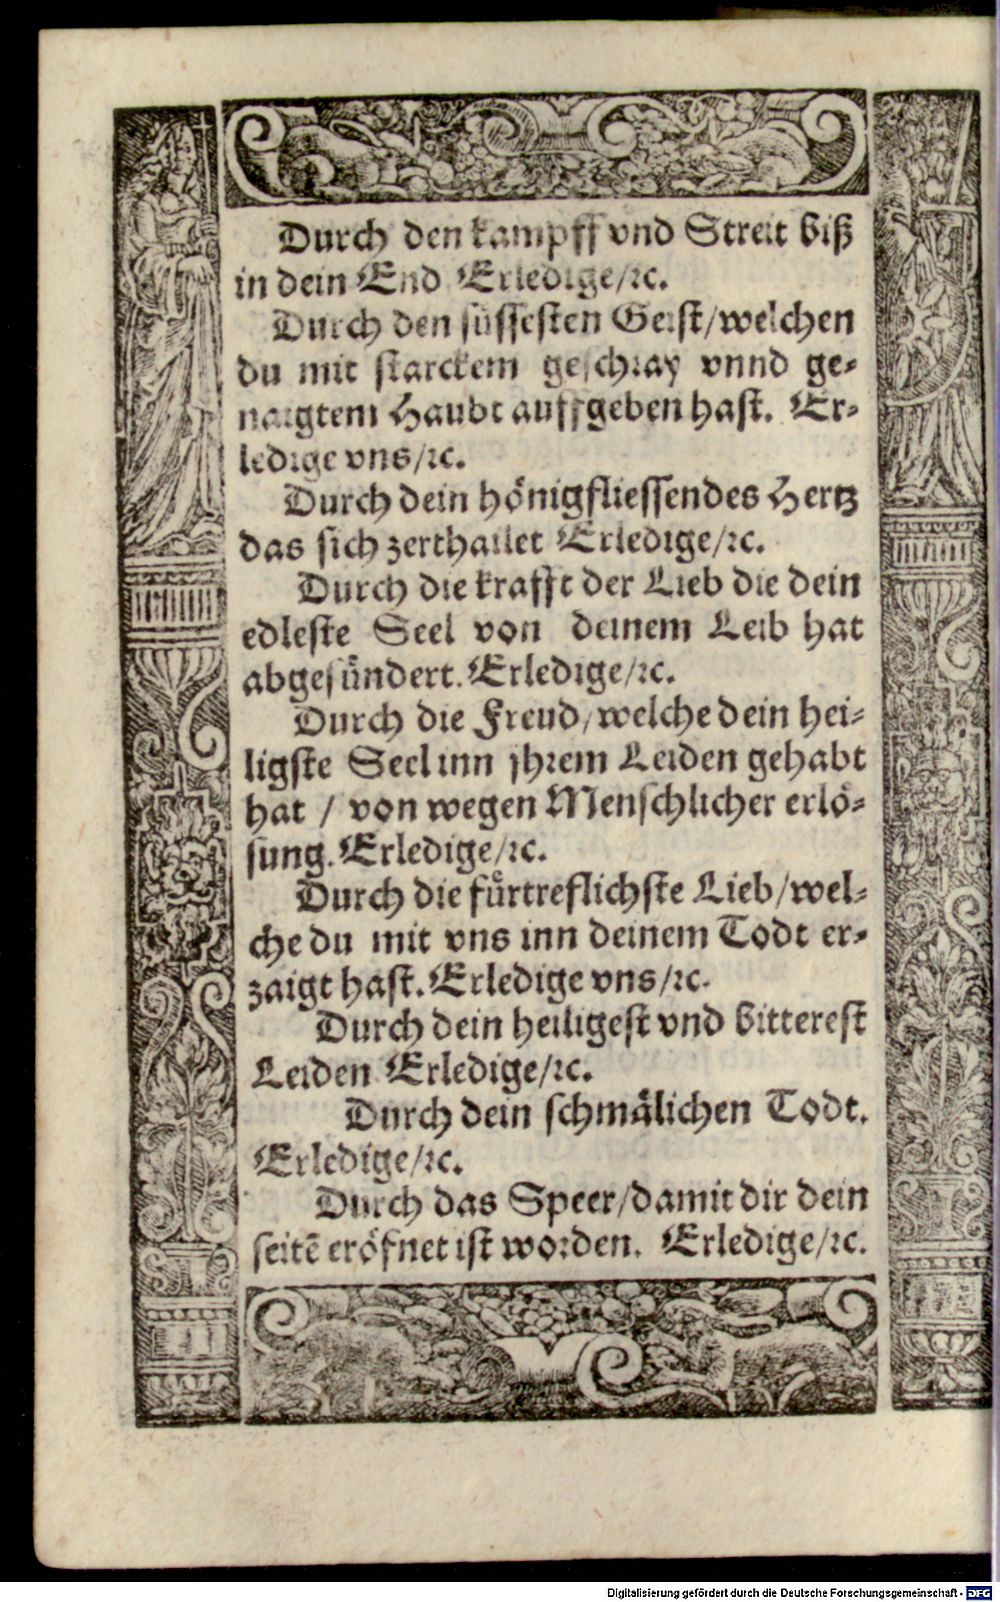 Durch den kampff vnd Streit biß
in dein End Erledige/ꝛc.
Durch den süssesten Geist/welchen
du mit starckem geschray vnnd ge-
naigtem Haubt auffgeben hast. Er-
ledige vns/ꝛc.
Durch dein hönigfliessendes Hertz
das sich zerthailet Erledige/ꝛc.
Durch die krafft der Lieb die dein
edleste Seel von deinem Leib hat
abgesündert. Erledige/ꝛc.
Durch die Freud/welche dein hei-
ligste Seel inn jhrem Leiden gehabt
hat / von wegen Menschlicher erlö-
sung. Erledige/ꝛc.
Durch die fürtreflichste Lieb/wel-
che du mit vns inn deinem Todt er-
zaigt hast. Erledige vns/ꝛc.
Durch dein heiligest vnd bitterest
Leiden Erledige/ꝛc.
Durch dein schmälichen Todt.
Erledige/ꝛc.
Durch das Speer/damit dir dein
seitē eröfnet ist worden. Erledige/ꝛc.
Digitalisierung gefördert durch die Deutsche Forschungsgemeinschaft - DFG